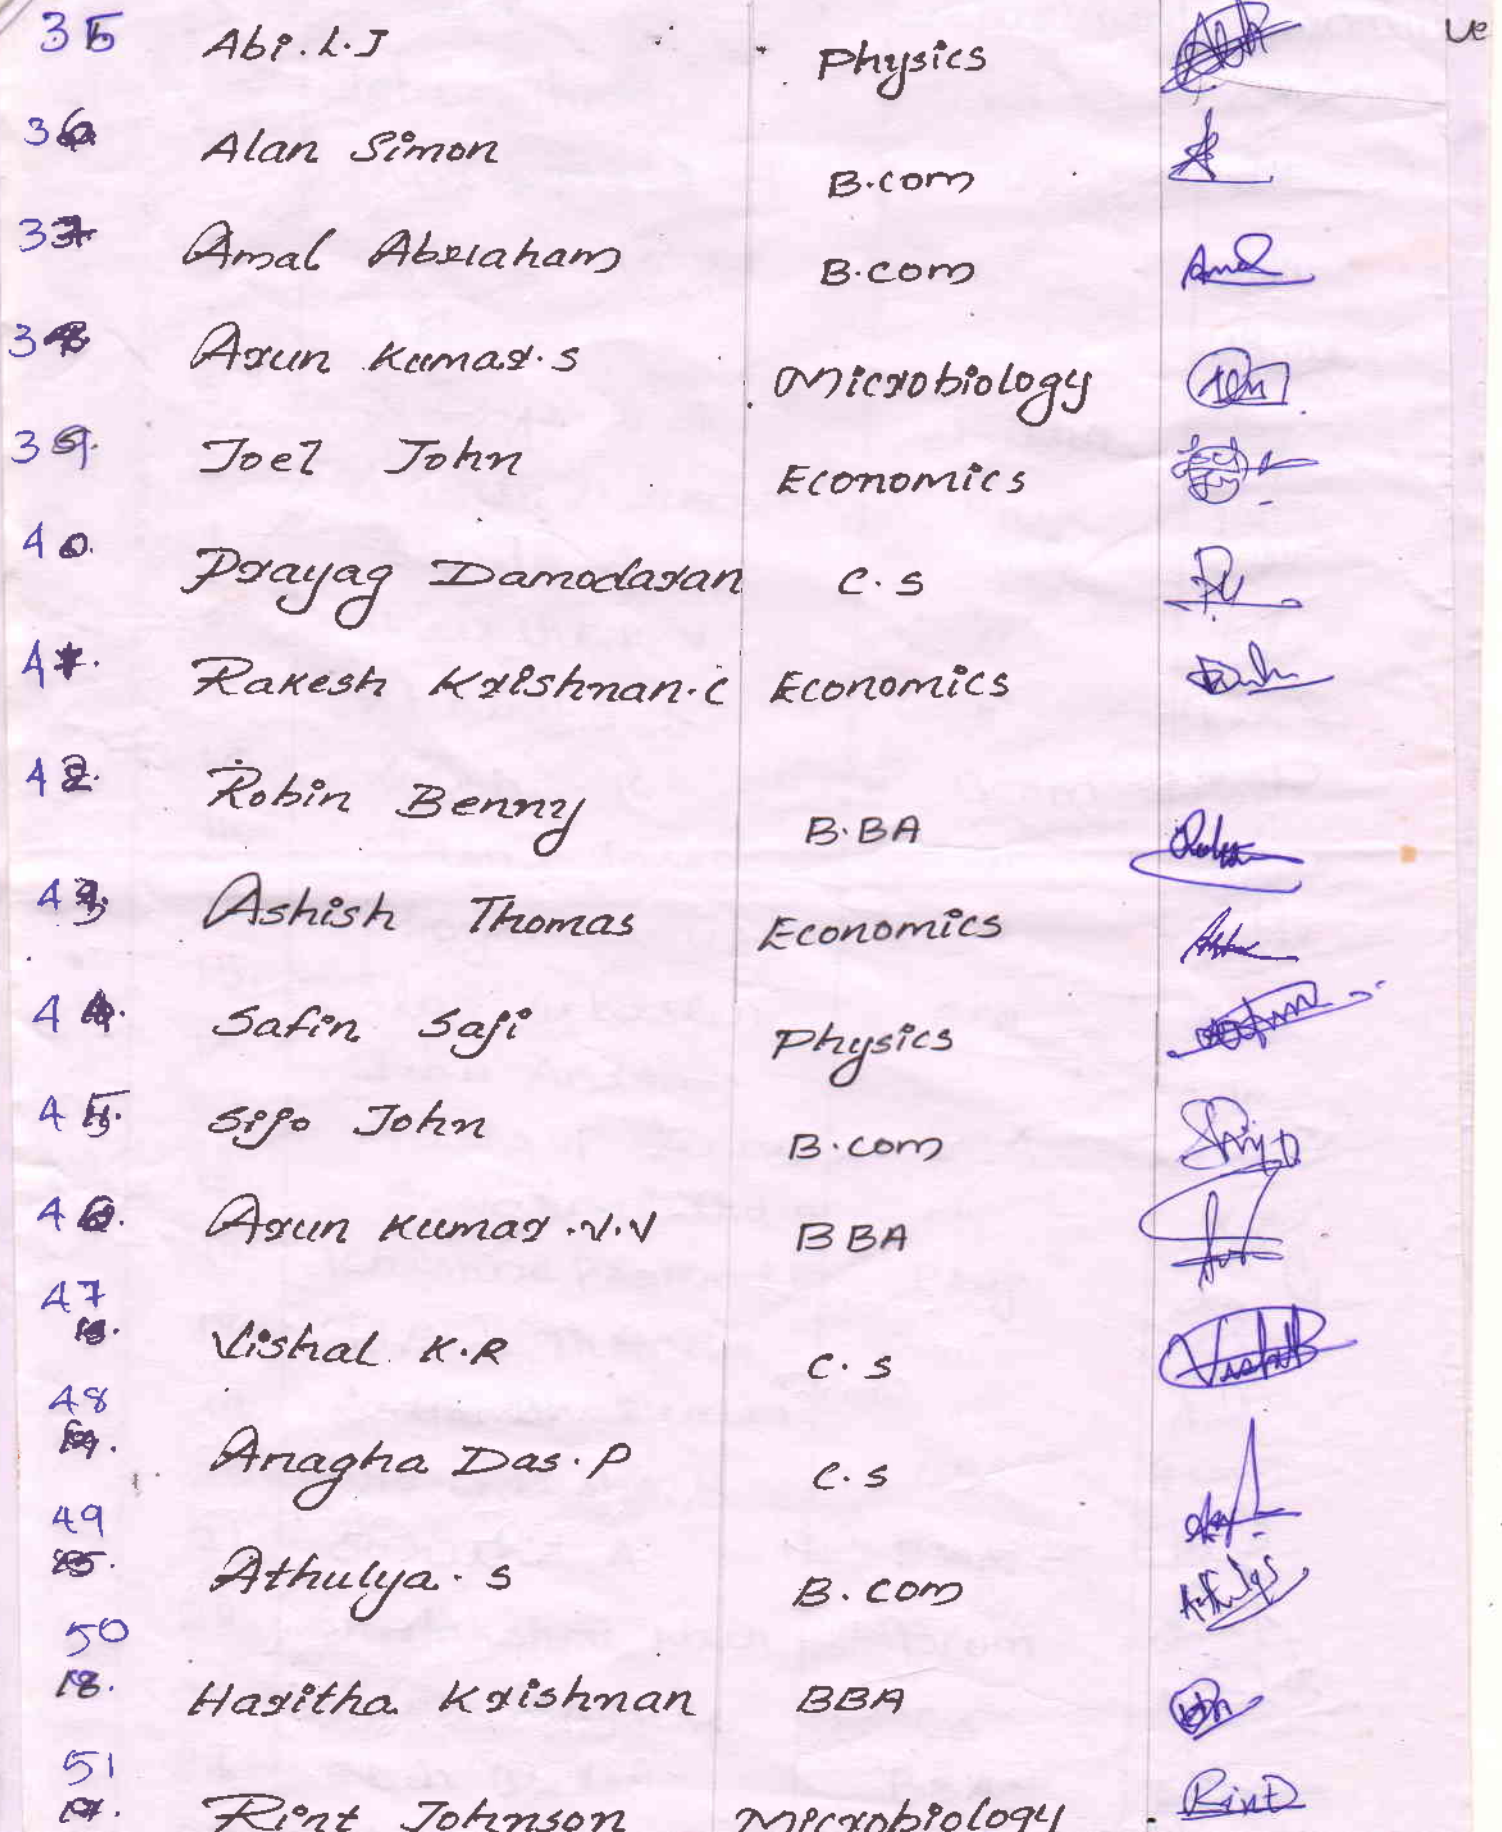 35 Abi. L. J Physics
ve
36 Alan Simon B.com
37 Amal Abraham B.com Amal
38 Arun Kumar. S Microbiology
39. Joel John Economics
40. Prayag Damodaran C. S
41. Rakesh Krishnan. C Economics
42. Robin Benny B.BA
43. Ashish Thomas Economics
44. Safin Saji Physics
45. Sijo John B.com
46. Arun Kumar .V.V BBA
47 Vishal K.R C. S
48 Anagha Das. P C. S
49 Athulya. S B. com
50 Haritha Krishnan BBA
51 Rint Johnson Microbiology Rint